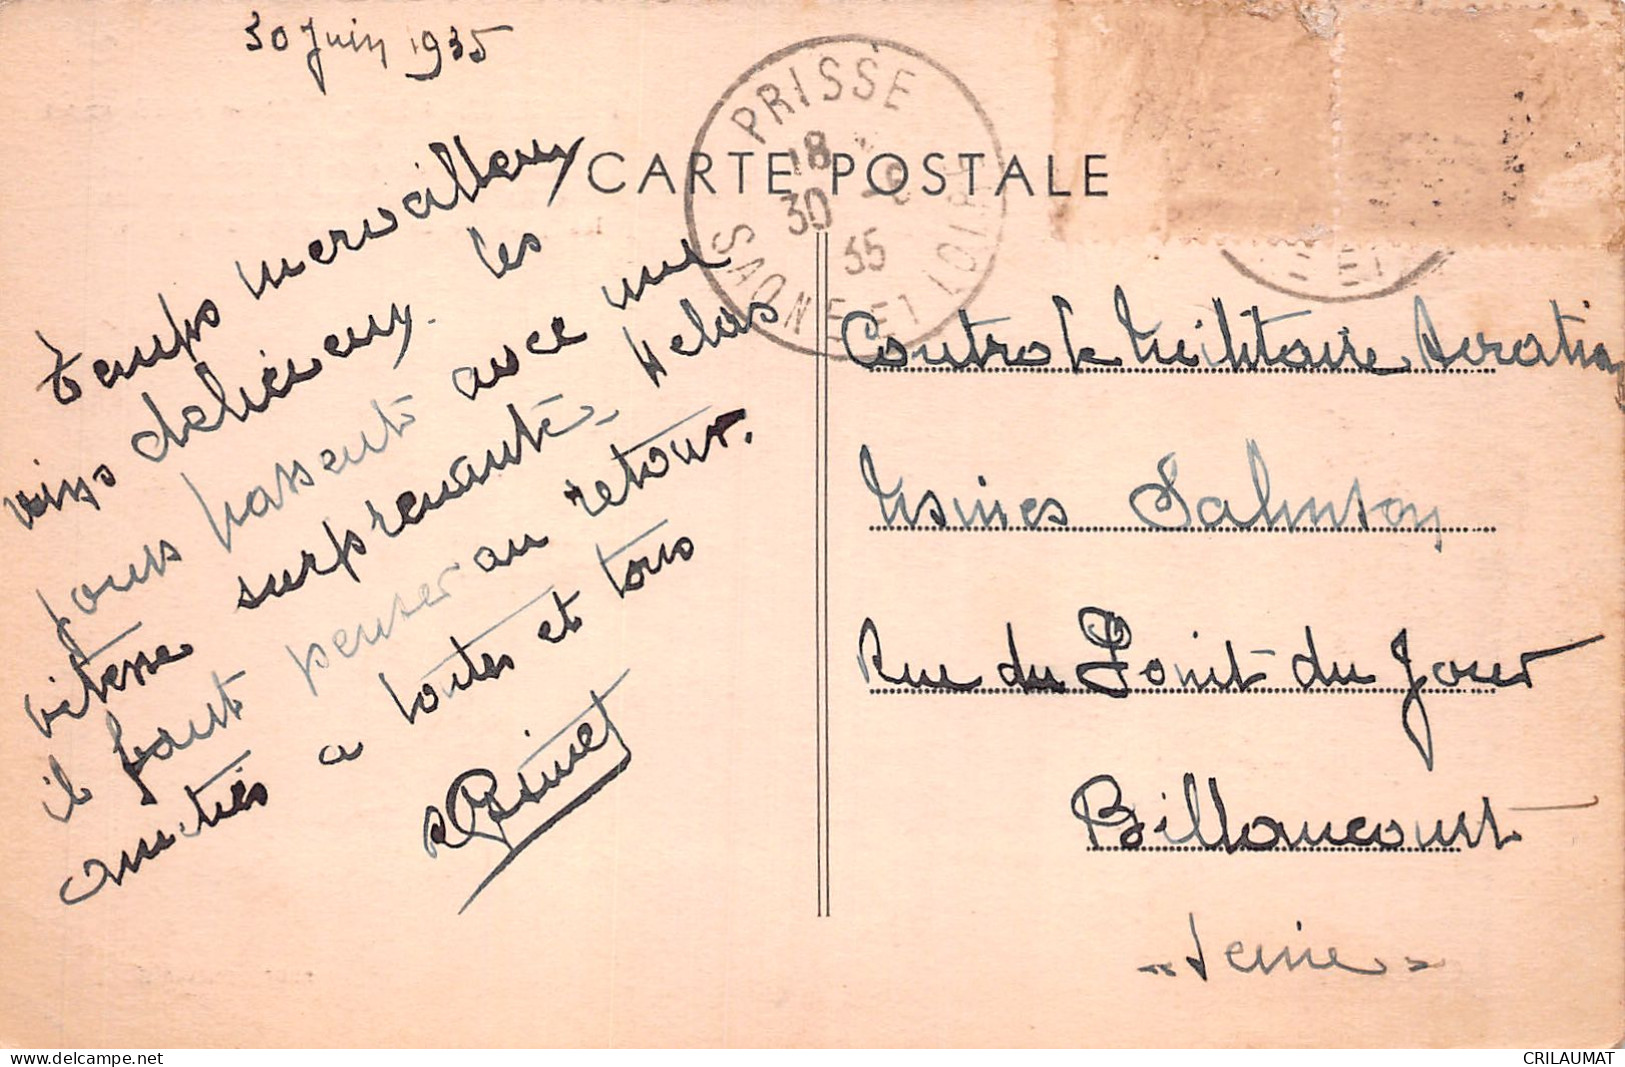 30 Juin 1935
CARTE POSTALE
PRISSÉ
18
30 -6
35
SAONE-ET-LOIRE
temps merveilleux
vins delicieux. les
jours passent avec une
vitesse surprenante. Helas
il faut penser au retour.
amitiés a toutes et tous
Controle Militaire Aeration
Usines Salmson
Rue du Point du Jour
Billancourt
- Seine -
delcampe.net
CRILAUMAT